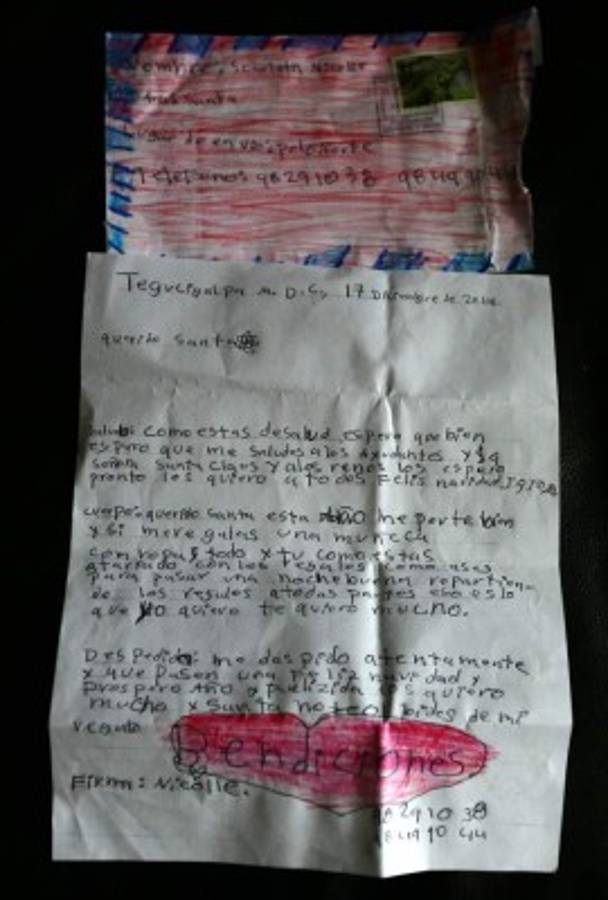 Nombre: Scarleth Nicolle
Para Santa
Lugar de envio: polo norte
Telefonos 98291038
Tegucigalpa M. D.C, 17 Diciembre de
querido Santa
como estas desalud espero que bien
espero que me saludes alos Ayudantes y la
señora santa claus y alos renos los espero
pronto los quiero a todos Felis navidad
cuerpo: querido santa este Año me porte bien
y si me regalas una muñeca
con ropa y todo y tu como estas
atariado con los regalos como ases
para pasar una nochebuena repartien
do los regalos atodas partes eso es lo
que Yo quiero te quiero mucho.
Despedida: me despido atentamente
y que pasen una feliz navidad y
prospero Año y felizidad los quiero
mucho y Santa no te olbides de mi
regalo
Bendiciones
Firma: Nicolle.
98291038